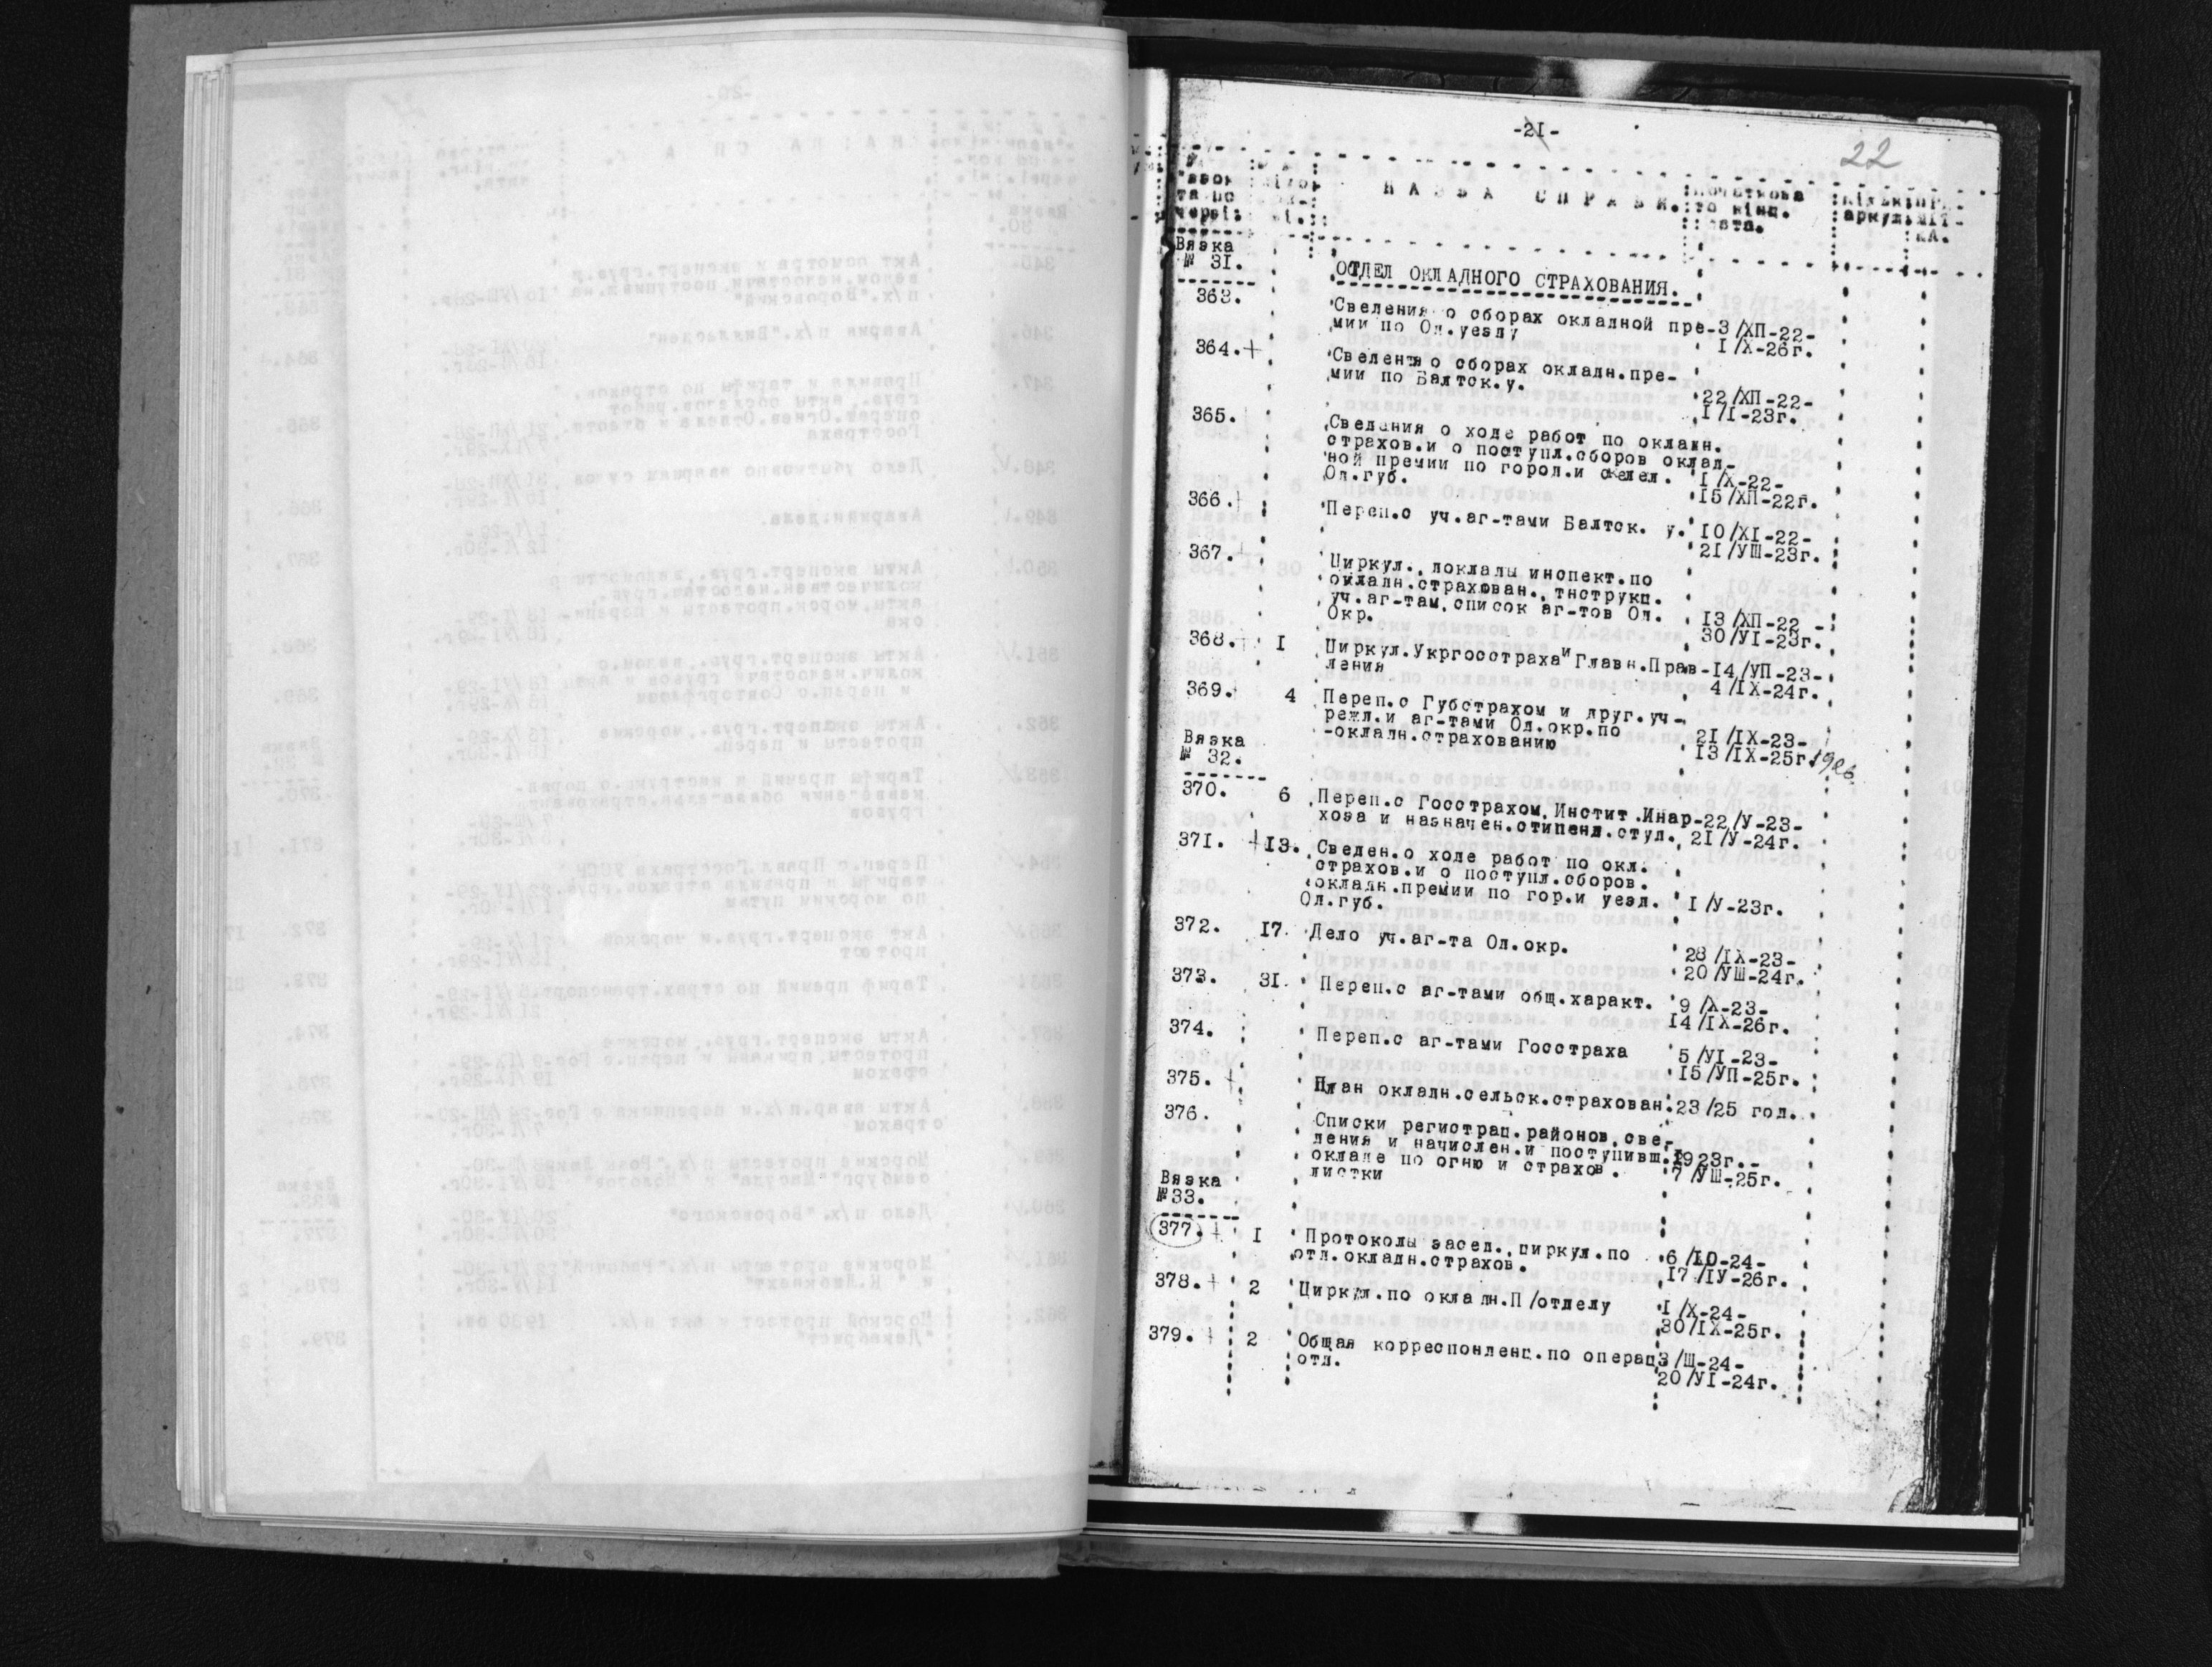 -21-
22
НАЗВА СПРАВИ.
Вязка
№ 31.
ОТДЕЛ ОКЛАДНОГО СТРАХОВАНИЯ.
363. Сведения о сборах окладной пре- 3/ХП-22-
мии по Од.уезду 1/Х-26г.
364.+ Сведения о сборах окладн.пре-
мии по Балтск.у. 22/ХП-22-
1/I-23г.
365. Сведения о ходе работ по окладн.
страхов.и о поступл.сборов оклад-
ной премии по город.и селел. I/Х-22-
Од.губ. 15/ХП-22г.
366.+ Переп.с уч.аг-тами Балтск. у. 10/XI-22-
21/УШ-23г.
367.+ Циркул., доклады инспект.по
окладн.страхован., тнструкц.
уч.аг-там, список аг-тов Од. 13/ХП-22-
Окр. 30/УI-23г.
368.+ I Циркул.Укргосстраха и Главн.Прав- 14/УП-23-
ления 4/IХ-24г.
369.+ 4 Переп.с Губстрахом и друг.уч-
режд.и аг-тами Од.окр.по 21/IХ-23-
-окладн.страхованию 13/IХ-25г. 1926.
Вязка
№ 32.
370. 6 Переп.с Госстрахом, Инстит.Инар- 22/У-23-
хоза и назначен.стипенд.студ. 21/У-24г.
371. +13. Сведен.о ходе работ по окл.
страхов.и о поступл.сборов.
окладн.премии по гор.и уезд. I/У-23г.
Од.губ.
372. 17. Дело уч.аг-та Од.окр. 28/IХ-23-
20/УШ-24г.
373. 31. Переп.с аг-тами общ.характ. 9/Х-23-
14/IХ-26г.
374. Переп.с аг-тами Госстраха 5/УI-23-
15/УП-25г.
375. + План окладн.сельск.страхован. 23/25 год.
376. Списки регистрац.районов, све-
дения и начислен.и поступивш. 1923г.-
окладе по огню и страхов. 7/УШ-25г.
листки
Вязка
№33.
377.+ I Протоколы засед., циркул.по 6/10-24-
отд.окладн.страхов. 17/IУ-26г.
378.+ 2 Циркул.по окладн.П/отделу I/Х-24-
30/IХ-25г.
379.+ 2 Общая корреспонденц.по операц. 3/Ш-24-
отд. 20/УI-24г.